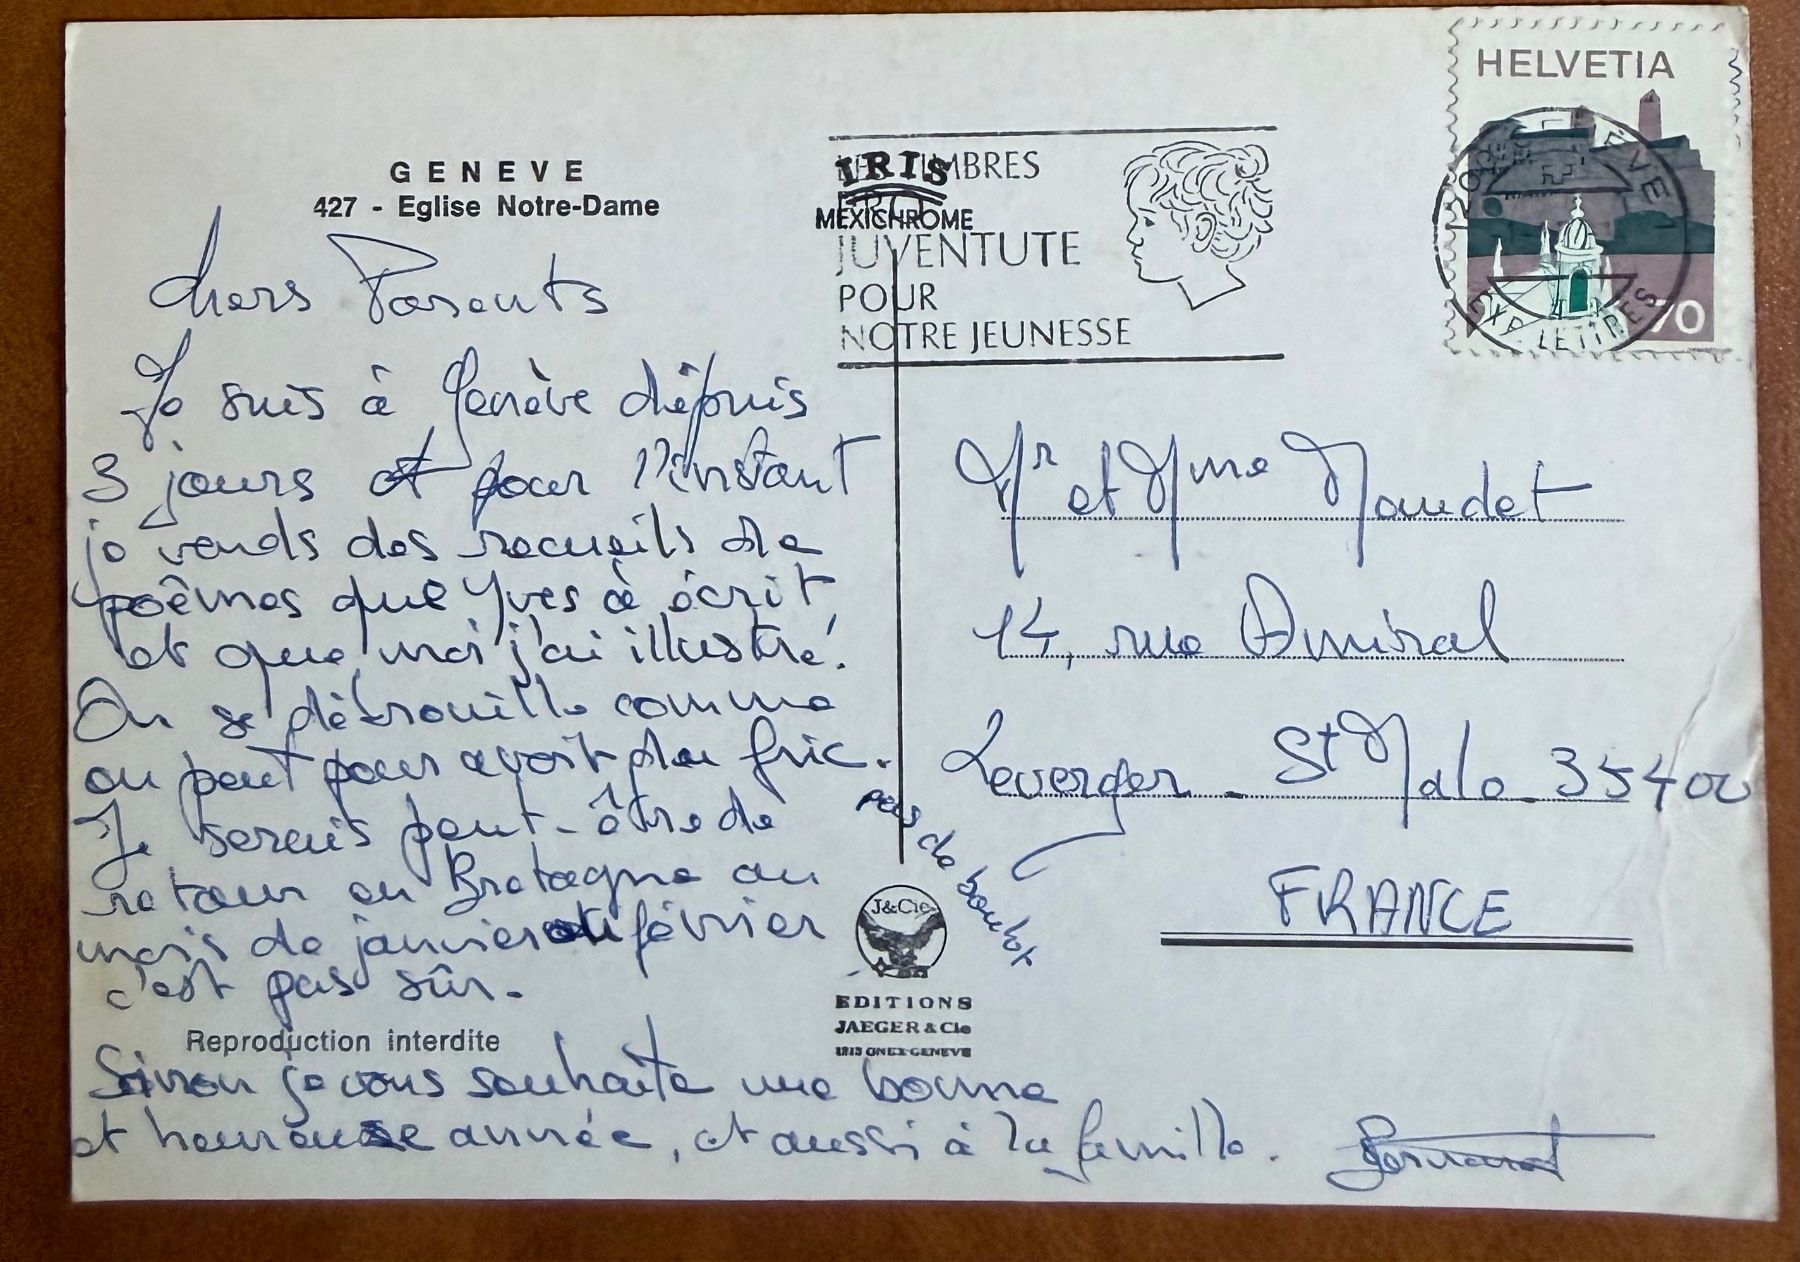 GENEVE
427 - Eglise Notre-Dame
Chers Parents
Je suis à Genève dépuis
3 jours et pour l'instant
je vends des recueils de
poêmes que Yves à écrit,
et que moi j'ai illustré!
On se débrouille comme
on peut pour avoir du fric.
pas de boulot
Je serais peut-être de
retour en Bretagne au
mois de janvier ou février
c'est pas sûr.
Reproduction interdite
Sinon je vous souhaite une bonne
et heureuse année, et aussi à la famille.
Bernard
IRIS
MEXICHROME
TIMBRES
PRO
JUVENTUTE
POUR
NOTRE JEUNESSE
HELVETIA
70
GENEVE
EXP. LETTRES
Mr et Mme Maudet
14, rue Amiral
Leverger - St Malo - 35400
FRANCE
J&Cie
EDITIONS
JAEGER & Cie
1213 ONEX-GENEVE